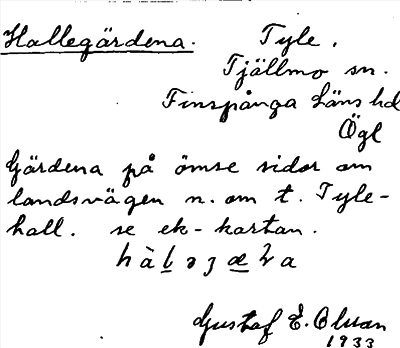 Hallegärdena. Tyle.
Tjällmo sn.
Finspånga Läns hd
Ögl
Gärdena på ömse sidor om
landsvägen n. om t. Tyle-
hall. se ek-kartan.
Gustaf E. Olsson
1933